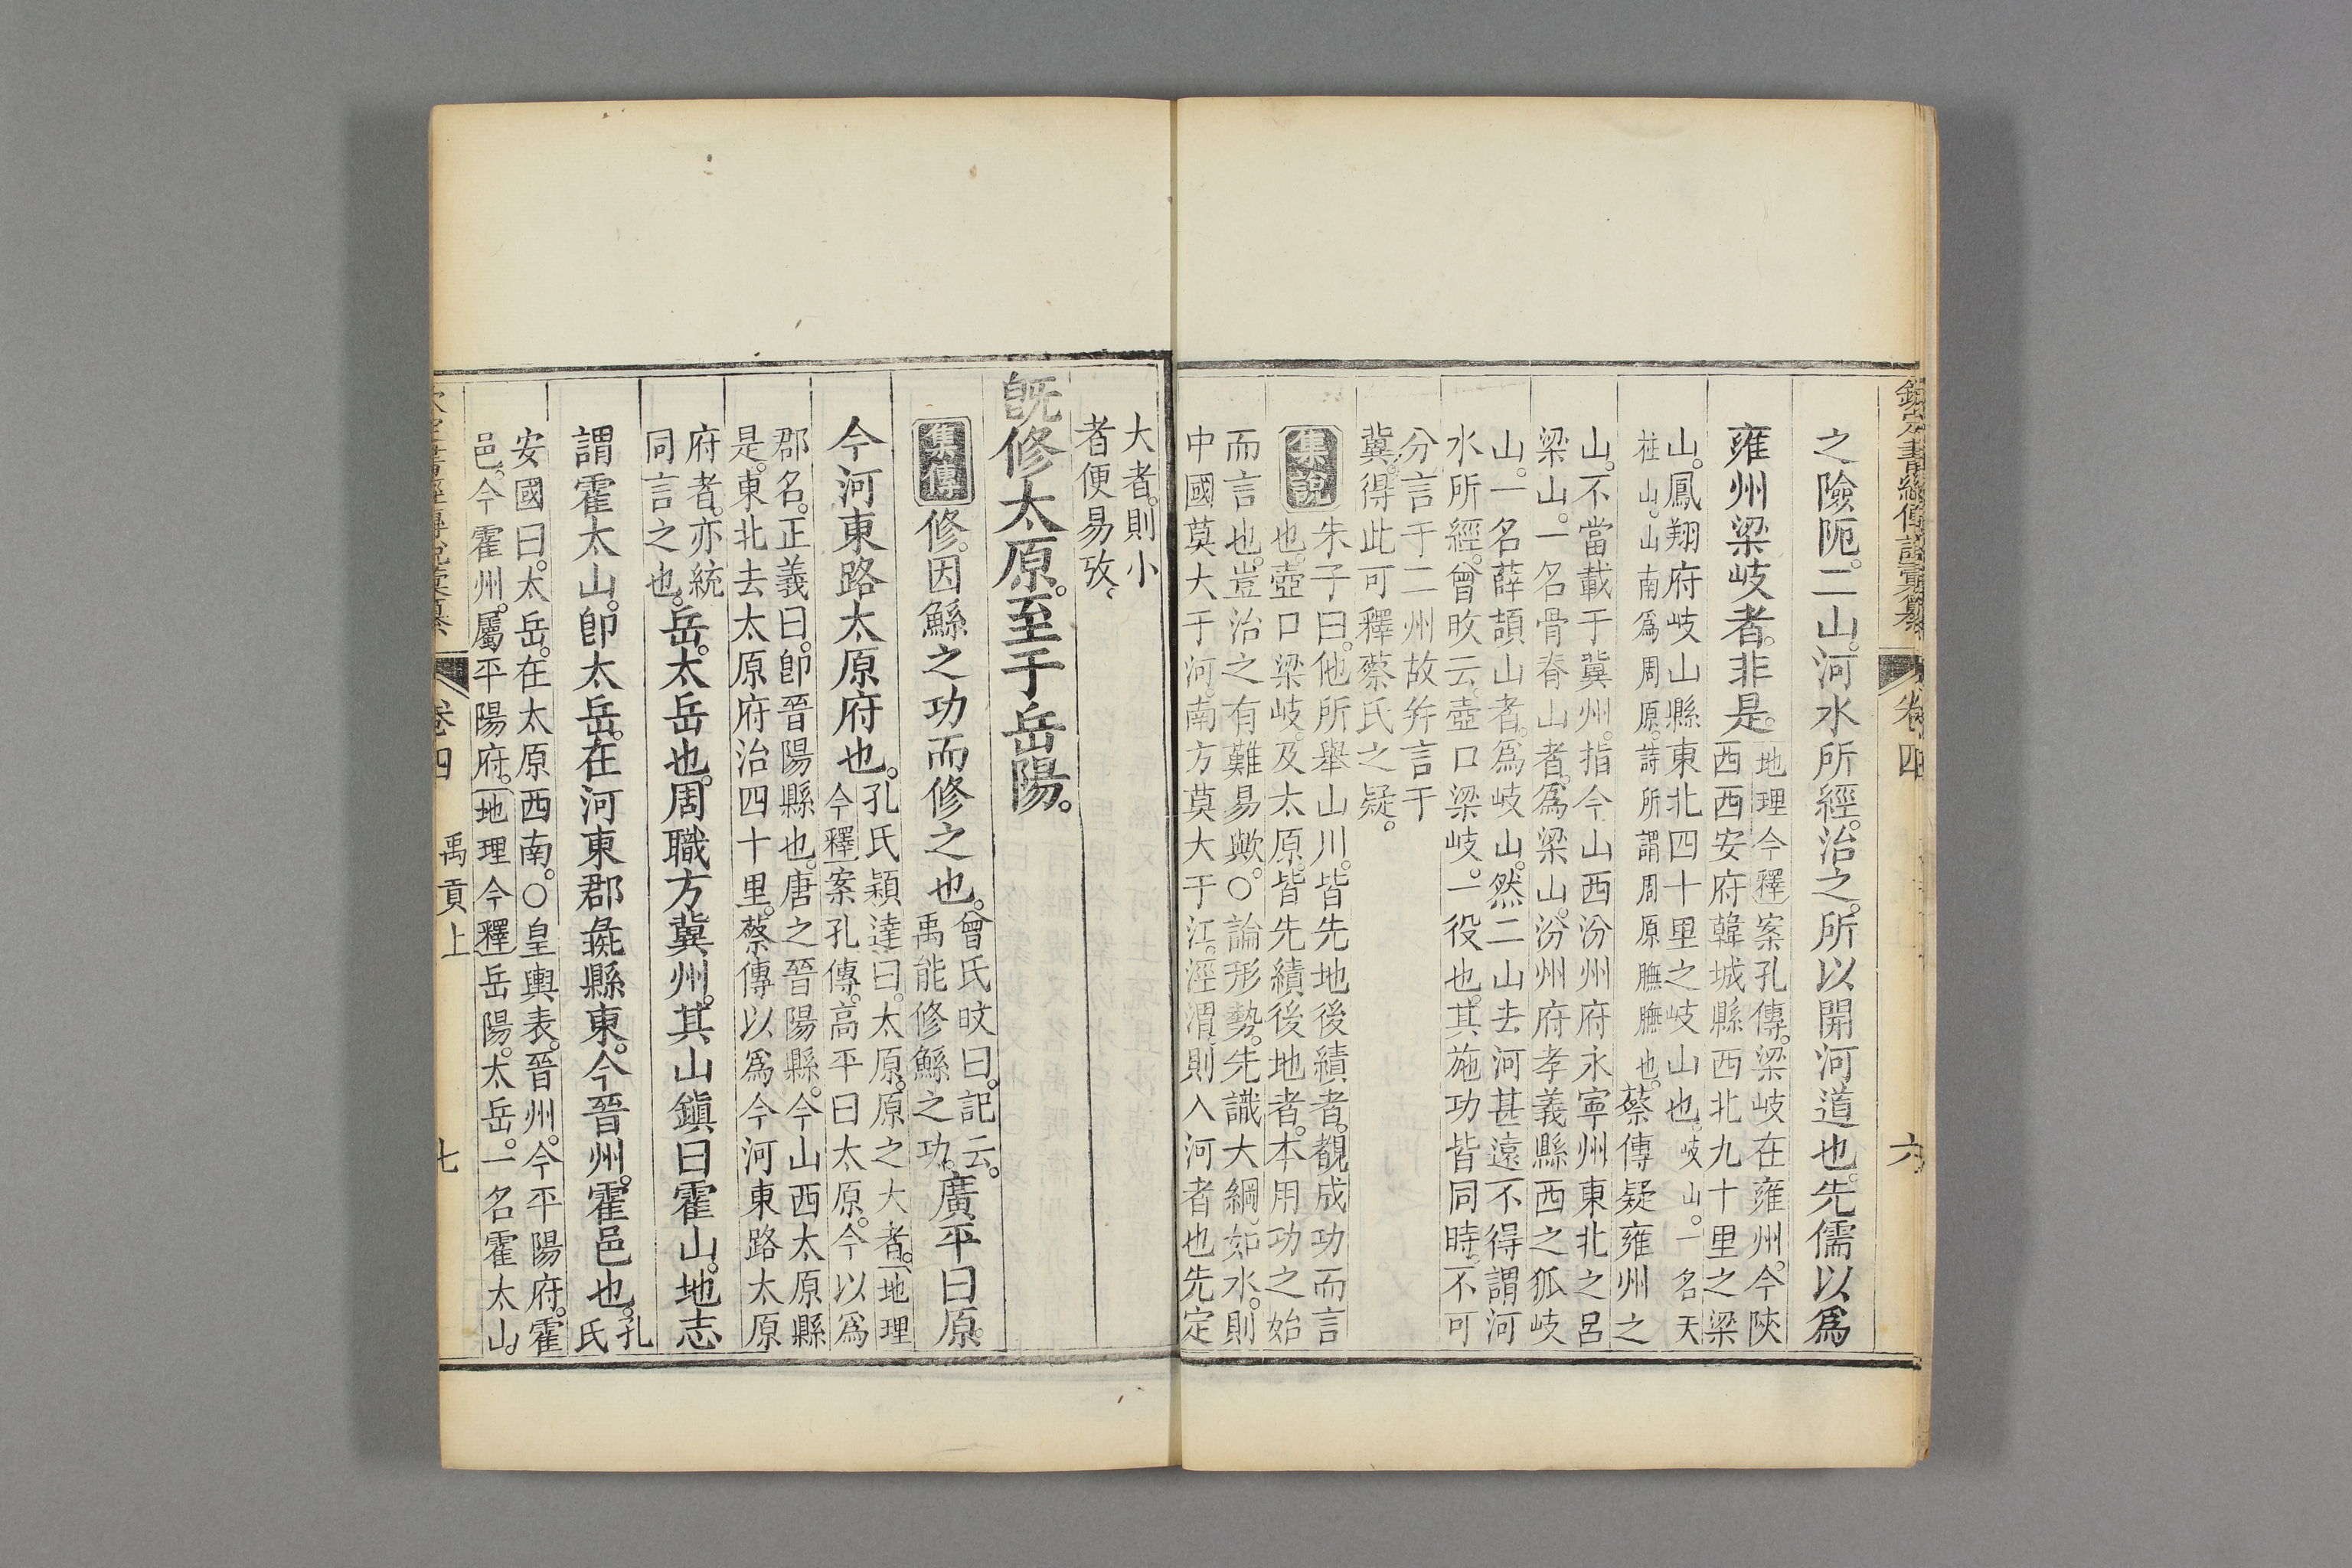 欽定書經傳說彙纂
卷四
六
之險阨。二山。河水所經。治之。所以開河道也。先儒以爲
雍州梁岐者。非是。
地理今釋案孔傳。梁岐在雍州。今陝
西西安府韓城縣西北九十里之梁
山。鳳翔府岐山縣東北四十里之岐山也。岐山。一名天
柱山。山南爲周原。詩所謂周原膴膴也。蔡傳疑雍州之
山。不當載于冀州。指今山西汾州府永寧州東北之呂
梁山。一名骨脊山者。爲梁山。汾州府孝義縣西之狐岐
山。一名薛頡山者。爲岐山。然二山去河甚遠。不得謂河
水所經。曾旼云。壺口梁岐。一役也。其施功皆同時。不可
分言于二州故幷言于
冀。得此可釋蔡氏之疑。
集說
朱子曰。他所舉山川。皆先地後績者。覩成功而言
也。壺口梁岐。及太原。皆先績後地者。本用功之始
而言也。豈治之有難易歟。○論形勢。先識大綱。如水。則
中國莫大于河。南方莫大于江。涇渭則入河者也先定
大者。則小
者便易攷、
旣修太原。至于岳陽。
集傳
修。因鯀之功而修之也。
曾氏旼曰。記云。
禹能修鯀之功。
廣平曰原。
今河東路太原府也。
孔氏穎達曰。太原。原之大者。地理
今釋案孔傳。高平曰太原。今以爲
郡名。正義曰。卽晉陽縣也。唐之晉陽縣。今山西太原縣
是。東北去太原府治四十里。蔡傳以爲今河東路太原
府者。亦統
同言之也。
岳。太岳也。周職方冀州。其山鎭曰霍山。地志
謂霍太山。卽太岳。在河東郡彘縣東。今晉州。霍邑也。
孔氏
安國曰。太岳。在太原西南。○皇輿表。晉州。今平陽府。霍
邑。今霍州。屬平陽府。地理今釋岳陽。太岳。一名霍太山。
欽定書經傳說彙纂
卷四
禹貢上
七